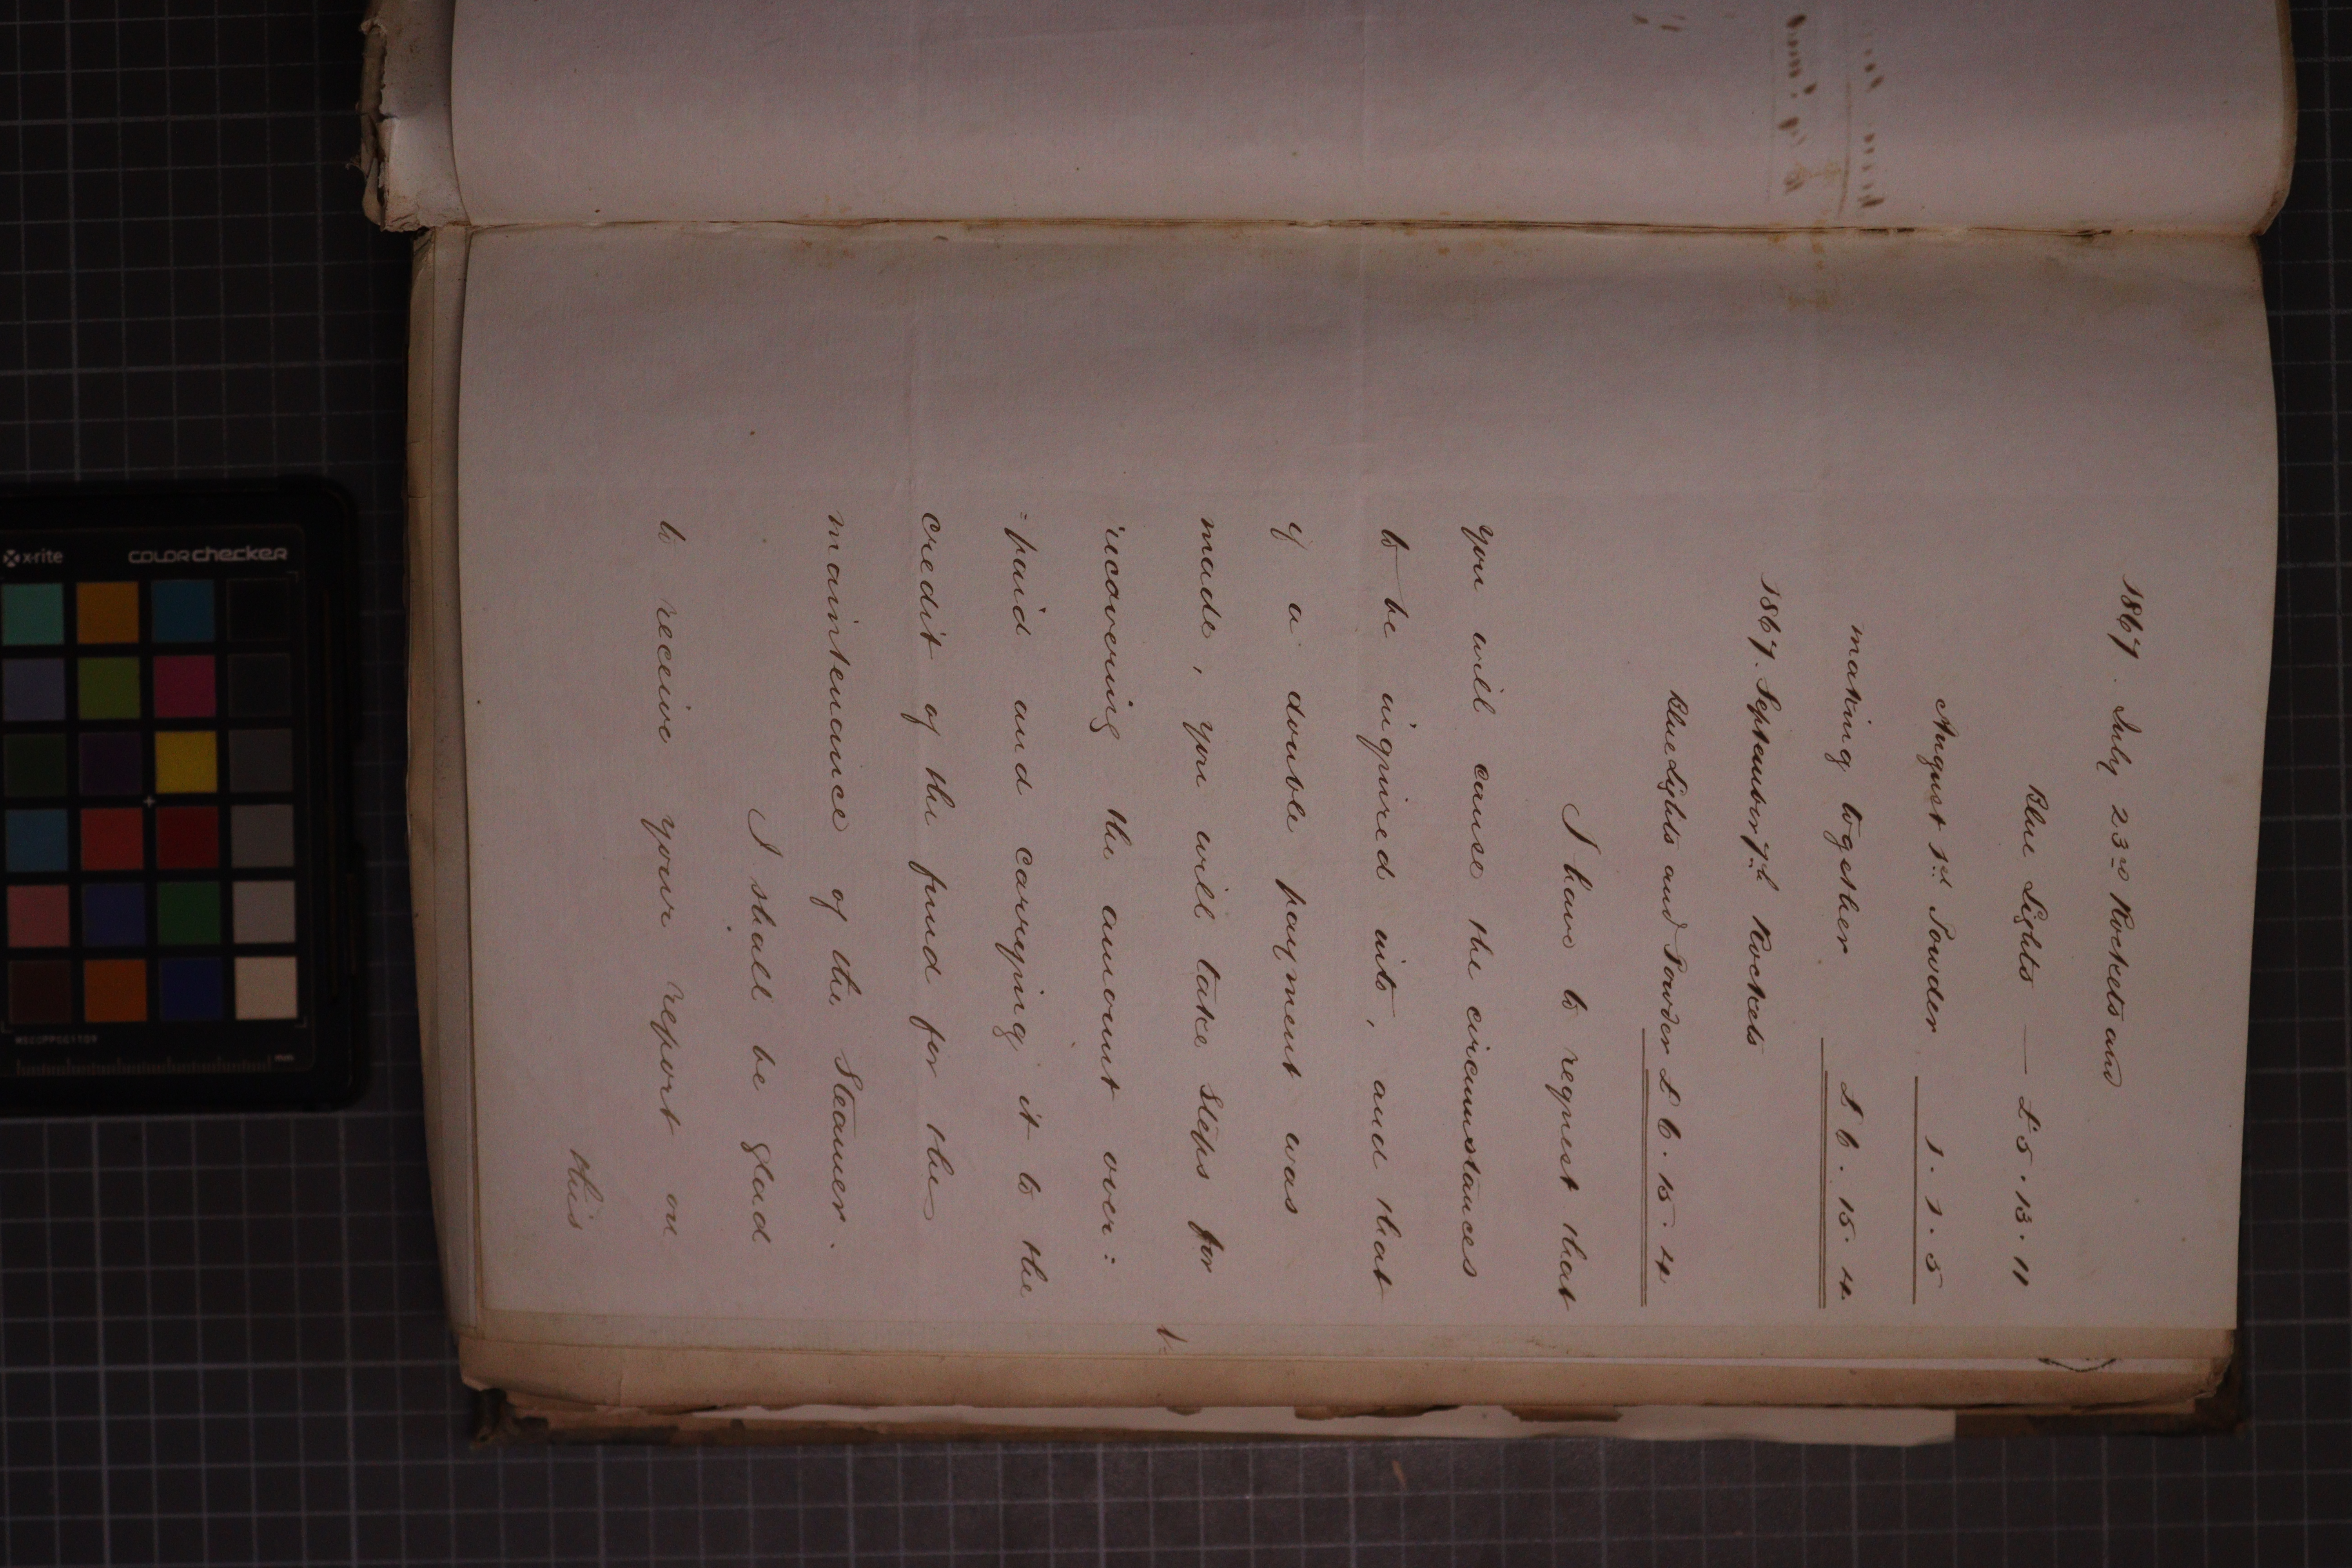 1867. July 23rd Rockets and
Blue Lights — £5.13.11
August 1st Powder 1.1.5
making together £6.15.4
1867. September 7th Rockets
Blue Lights and Powder £6.15.4
I have to request that
you will cause the circumstances
to be inquired into, and that
if a double payment was
made, you will take steps for
recovering the amount over:
=paid and carrying it to the
credit of the fund for the
maintenance of the Steamer.
I shall be glad
to receive your report on
this
x-rite
colorchecker
MSCCPPCC1109
mm